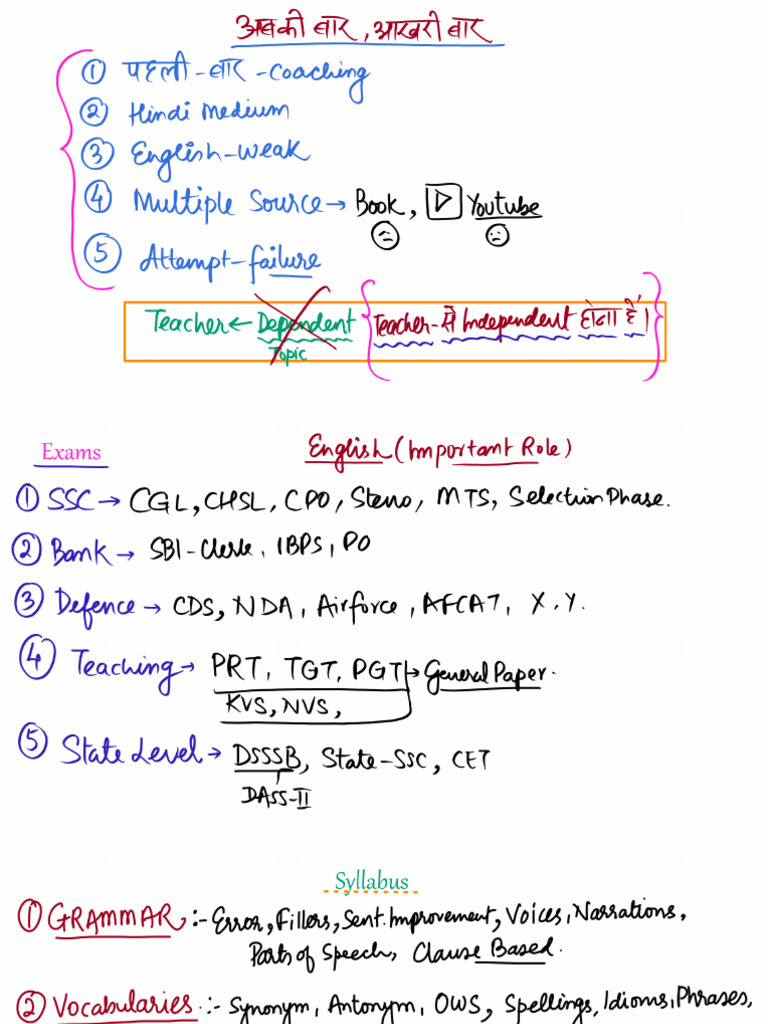 अबकी बार, आखरी बार
① पहली-बार-Coaching
② Hindi Medium
③ English-weak
④ Multiple Source → Book, Youtube
⑤ Attempt-failure
Teacher ← Dependent {Teacher-से Independent होता है।}
Topic
Exams English (Important Role)
① SSC → CGL, CHSL, CPO, Steno, MTS, Selection Phase.
② Bank → SBI-Clerk, IBPS, PO
③ Defence → CDS, NDA, Airforce, AFCAT, X, Y.
④ Teaching → PRT, TGT, PGT → General Paper.
KVS, NVS,
⑤ State Level → DSSSB, State-SSC, CET
DASS-II
Syllabus
① GRAMMAR :- Error, Fillers, Sent. Improvement, Voices, Narrations,
Parts of Speech, Clause Based.
② Vocabularies :- Synonym, Antonym, OWS, Spellings, Idioms, Phrases,